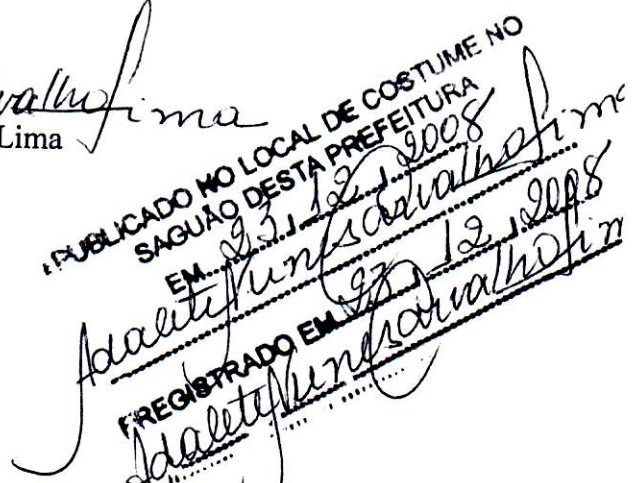 valho Lima
Lima
PUBLICADO NO LOCAL DE COSTUME NO
SAGUÃO DESTA PREFEITURA
EM 23, 12, 2008
Adalete Nunes Carvalho Lima
REGISTRADO EM 23, 12, 2008
Adalete Nunes Carvalho Lim